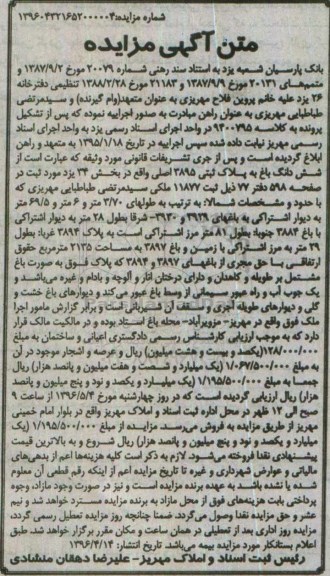 شماره مزایده:۱۳۹۶۰۴۳۲۱۶۵۲۰۰۰۰۰۴
متن آگهی مزایده
بانک پارسیان شعبه یزد به استناد سند رهنی شماره ۲۰۰۷۹ مورخ ۱۳۸۷/۹/۲ و
متمم‌های ۲۰۱۳۱ مورخ ۱۳۸۷/۹/۹ و ۲۱۱۸۳ مورخ ۱۳۸۸/۲/۲۸ تنظیمی دفترخانه
۲۶ یزد علیه خانم پروین فلاح مهریزی به عنوان متعهد(وام گیرنده) و سیدمرتضی
طباطبایی مهریزی به عنوان راهن مبادرت به صدور اجراییه نموده که پس از تشکیل
پرونده به کلاسه ۹۴۰۰۷۹۵ در واحد اجرای اسناد رسمی یزد به واحد اجرای اسناد
رسمی مهریز نیابت داده شده سپس اجراییه در تاریخ ۱۳۹۵/۱/۱۸ به متعهد و راهن
ابلاغ گردیده است و پس از جری تشریفات قانونی مورد وثیقه که عبارت است از
شش دانگ باغ به پلاک ثبتی ۳۸۹۵ اصلی واقع در بخش ۳۴ یزد مورد ثبت در
صفحه ۵۹۸ دفتر ۷۷ ذیل ثبت ۱۱۸۷۷ ملکی سیدمرتضی طباطبایی مهریزی که
با حدود و مشخصات شمالا: به ترتیب به طولهای ۳/۷۰ متر و ۶ متر و ۶۹/۵ متر
به دیوار اشتراکی به باغهای ۳۹۲۹ و ۳۹۳۰- شرقا بطول ۲۸ متر به دیوار اشتراکی
با باغ ۳۸۸۴ جنوبا: بطول ۸۱ متر مرز اشتراکی است به پلاک ۳۸۹۴ غربا: بطول
۲۹ متر به مرز اشتراکی با زمین و باغ ۳۸۹۷ به مساحت ۲۱۳۵ مترمربع حقوق
ارتفاقی: با حق مجری از باغهای ۳۸۹۷ و ۳۸۹۴ که پلاک فوق به صورت باغ
مشتمل بر طویله و کاهدان و دارای درختان انار و آلوچه و بادام و غیره می‌باشد و
یک جوب آب و راه عبور سیمانی از وسط باغ عبور می‌کند و دیوارهای باغ خشت و
گلی و دیوارهای طویله آجری و سقف آن شیروانی است و برابر گزارش مامور اجرا
ملک فوق واقع در مهریز- مزویرآباد- محله باغ استاد بوده و در مالکیت مالک قرار
دارد که به موجب ارزیابی کارشناس رسمی دادگستری اعیانی و ساختمان به مبلغ
۱۲۸/۰۰۰/۰۰۰(یکصد و بیست و هشت میلیون) ریال و عرصه و اشجار موجود در آن
به مبلغ ۱/۰۶۷/۵۰۰/۰۰۰ (یک میلیارد و شصت و هفت میلیون و پانصد هزار) ریال
جمعا به مبلغ ۱/۱۹۵/۵۰۰/۰۰۰ (یک میلیارد و یکصد و نود و پنج میلیون و پانصد
هزار) ریال ارزیابی گردیده است که در روز چهارشنبه مورخ ۱۳۹۶/۵/۴ از ساعت ۹
صبح الی ۱۲ ظهر در محل اداره ثبت اسناد و املاک مهریز واقع در بلوار امام خمینی
مهریز از طریق مزایده به فروش می‌رسد. مزایده از مبلغ ۱/۱۹۵/۵۰۰/۰۰۰ (یک
میلیارد و یکصد و نود و پنج میلیون و پانصد هزار) ریال شروع و به بالاترین قیمت
پیشنهادی نقدا فروخته می‌شود. لازم به ذکر است کلیه هزینه‌ها اعم از بدهی‌های
مالیاتی و عوارض شهرداری و غیره تا تاریخ مزایده اعم از اینکه رقم قطعی آن معلوم
شده یا نشده باشد به عهده برنده مزایده است و نیز در صورت وجود مازاد، وجوه
پرداختی بابت هزینه‌های فوق از محل مازاد به برنده مزایده مسترد خواهد شد و نیم
عشر و حق مزایده نقدا وصول می‌گردد. ضمنا چنانچه روز مزایده تعطیل رسمی گردد،
مزایده روز اداری بعد از تعطیلی در همان ساعت و مکان مقرر برگزار خواهد شد. طبق
اعلام بستانکار مورد مزایده بیمه می‌باشد. تاریخ انتشار: ۱۳۹۶/۴/۱۴
رئیس ثبت اسناد و املاک مهریز- علیرضا دهقان منشادی